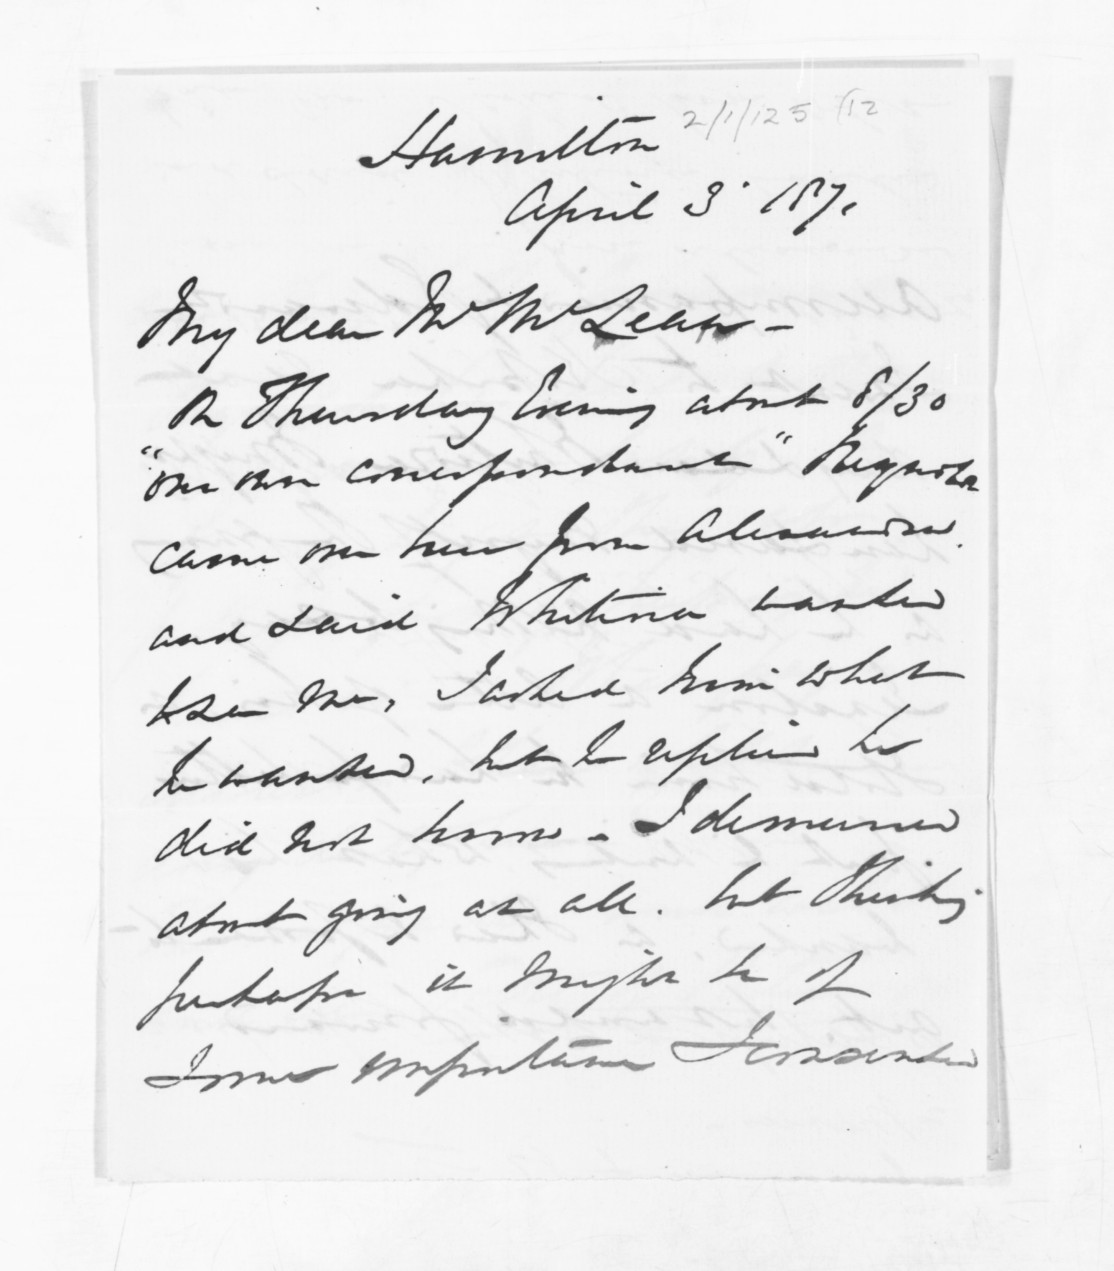 2/1/125 /12
Hamilton
April 3. 187.
My dear Mr McLean -
On Thursday Evening about 8/30
"our own correspondant" Reynolds
came over here from Alexandra.
and said Whitiora wanted
to see me, I asked him what
he wanted, but he replied he
did not know - I demurred
about going at all. but thinking
perhaps it might be of
some importance I consented